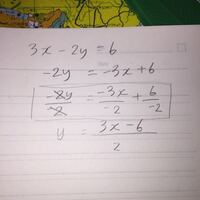 3x - 2y = 6
-2y = -3x + 6
-2y/-2 = -3x/-2 + 6/-2
y = 3x - 6/2